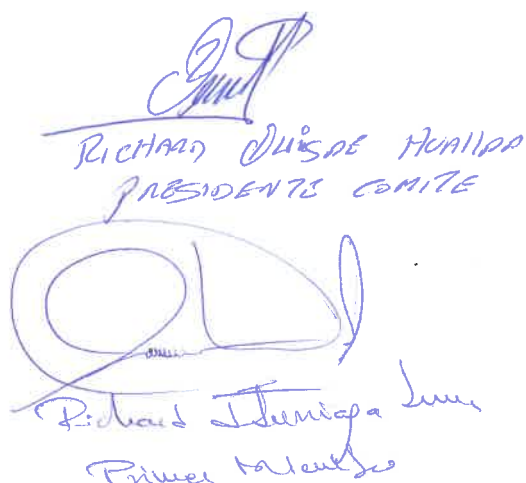 RICHARD QUISPE HUALLPA
PRESIDENTE COMITE
Richard
Primer Miembro